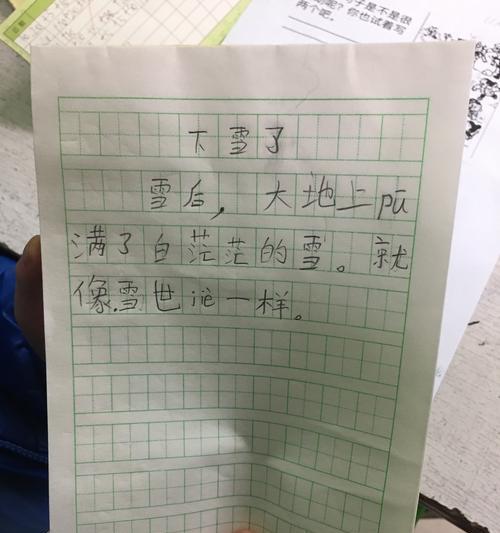 子是不是很
呢？你也试着写
两个吧。
下雪了
雪后，大地上pū
满了白茫茫的雪。就
像雪世jiè一样。